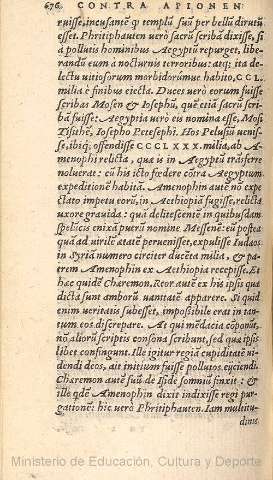 676 CONTRA APIONEN
ruisse, incusante qꝫ templũ suũ per bellũ dirutũ
esset. Phritiphauten verò sacrũ scribã dixisse, si
à pollutis hominibus Aegyptũ repurget, libe-
randũ eum à nocturnis terroribus: atqꝫ ita de-
lectu uitiosorum morbidorũmque habito, CCL.
milia è finibus eiecta. Duces verò eorum fuisse
scribas Mosen & Iosephũ, quẽ etiã sacrũ scri-
bã fuisse: Aegyptia uirò eis nomina esse, Mosi
Tisithẽ, Iosepho Petesephi. Hos Pelusiũ uenis-
se, ibiqꝫ offendisse CCCLXXX. milia, ab A-
menophi relicta, quæ is in Aegyptũ trãsferre
noluerat: cũ his icto fœdere cõtra Aegyptum
expeditionẽ habitã. Amenophin autẽ nõ expe-
ctato impetu eorũ, in Aethiopiã fugisse, relicta
uxore grauida: quã delitescentẽ in quibusdam
speluncis enixã puerũ nomine Messenẽ: eũ postea
quã ad uirilẽ ætatẽ peruenisset, expulisse Iudæos
in Syriã numero circiter ducẽta milia, & pa-
trem Amenophin ex Aethiopia recepisse. Et
hæc quidẽ Chæremon. Reor autẽ ex his ipsis quæ
dicta sunt amborũ uanitatẽ apparere. Si quid
enim ueritatis subesset, impossibile erat in tan-
tum eos discrepare. At qui mẽdacia cõponũt,
nõ aliorũ scriptis consona scribunt, sed quæ ipsis
libet confingunt. Ille igitur regis cupiditatẽ ui-
dendi deos, ait initium fuisse pollutos eijciendi.
Chæremon autẽ suũ de Iside somniũ finxit: &
ille qdẽ Amenophin dixit indixisse regi pur-
gationẽ: hic uerò Phritiphauten. Iam multitu-
dinis
Ministerio de Educación, Cultura y Deporte